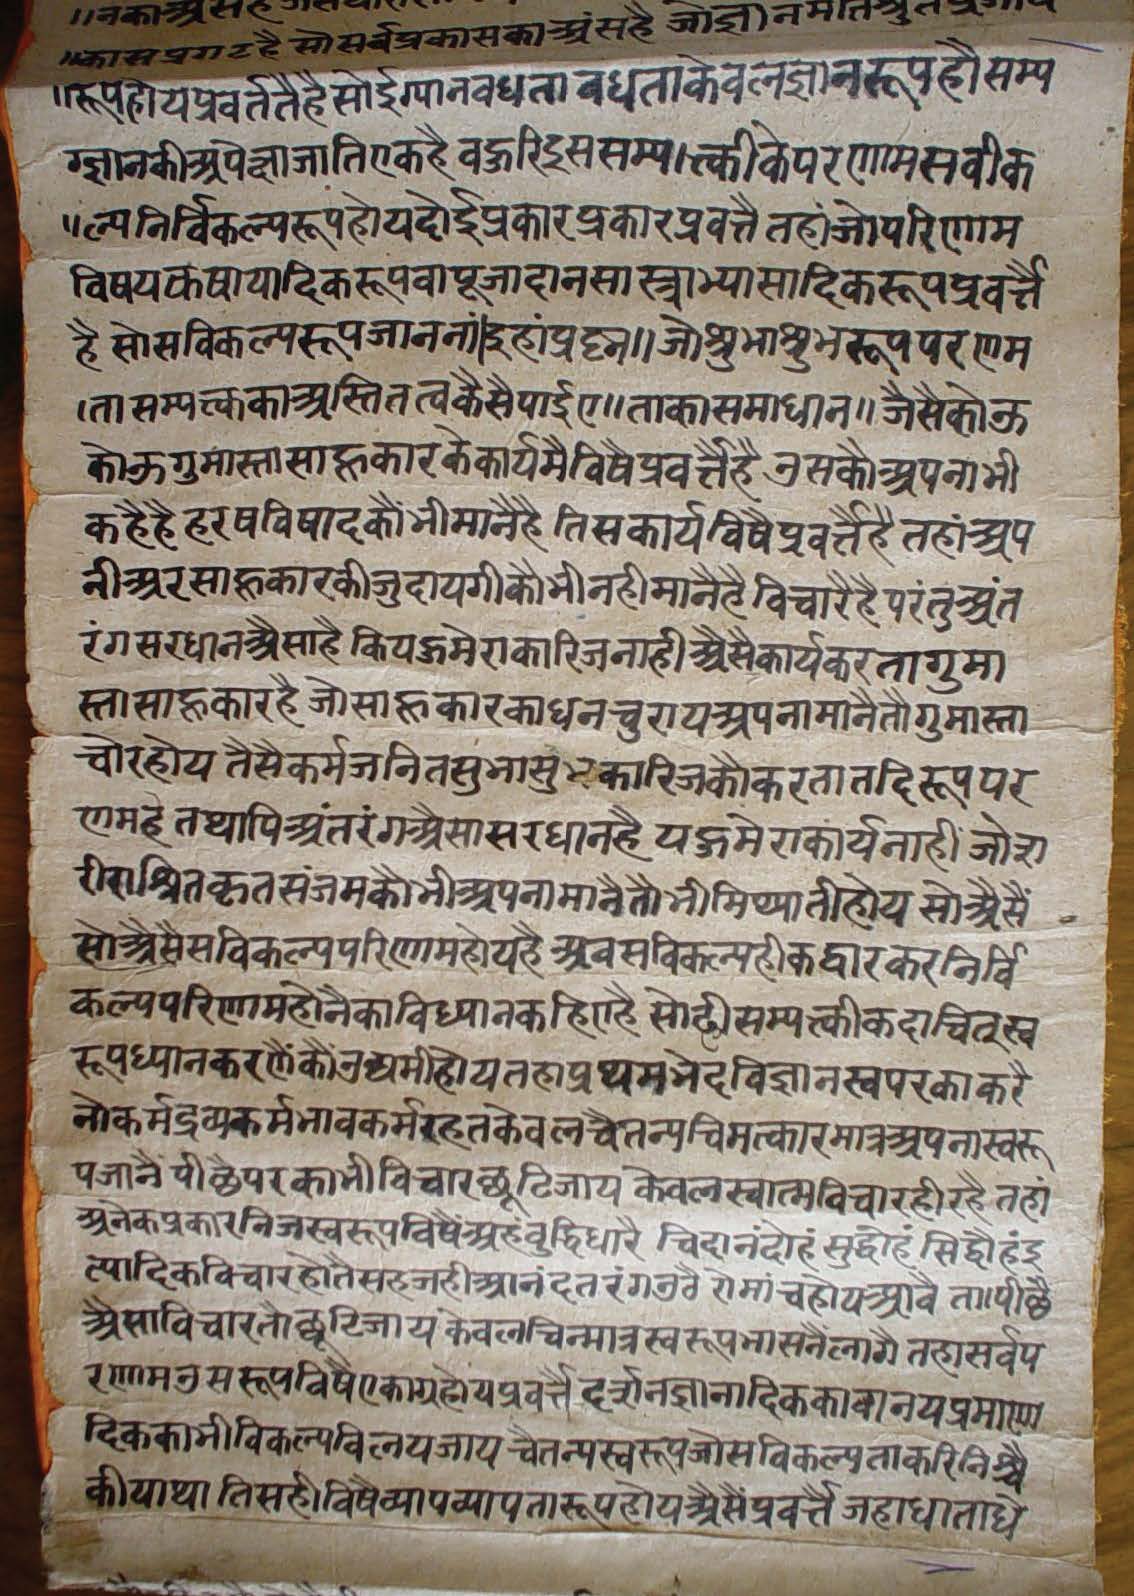 ॥कास प्रगट है सो सर्व प्रकास का अंस है जो ज्ञान मति श्रुत
॥रूप होय प्रवर्ततै है सोई ग्यान वधता वधता केवलज्ञान रूप हौ सम्य
ग्ज्ञान की अपेक्षा जाति एक है वहुरि इस सम्यत्की के परणाम सवीक
॥ल्प निर्विकल्प रूप होय दोई प्रकार प्रकार प्रवर्त्तै तहां जो परिणाम
विषय कषायादिक रूप वा पूजा दान सास्त्राभ्यासादिक रूप प्रवर्त्तै
है सो सविकल्प रूप जाननां॥ इहां प्रश्न॥ जो शुभाशुभ रूप परणम
।ता सम्यत्क का अस्तितत्व कैसै पाईए॥ ताका समाधान॥ जैसै कोऊ
कोऊ गुमास्ता साहूकार के कार्यमै विषै प्रवर्त्तै है उसकौ अपना भी
कहै है हरष विषाद कौं भी मानै है तिस कार्य विषै प्रवर्त्तै है तहां अप
नी अर साहूकार की जुदायगी कौ भी नही मानै है विचारै है परंतु अंत
रंग सरधान अैसा है कि यहु मेरा कारिज नाही अैसै कार्य करता गुमा
स्ता साहूकार है जो साहूकार का धन चुराय अपना मानै तौ गुमास्ता
चोर होय तैसै कर्मजनित सुभासुभ कारिज कौ करता तदिरूप पर
णम है तथापि अंतरंग अैसा सरधान है यहु मेरा कार्य नाहीं जो शरा
रीराश्रित कृत संजम कौ भी अपना मानै तौ भी मिथ्याती होय सो अैसैं
सो अैसै सविकल्प परिणाम होय है अव सविकल्प ही क द्वार कर निर्वि
कल्प परिणाम होनै का विध्यान कहिए है सो ही सम्यत्की कदाचित् स्व
रूप ध्यान करणैं कौं उद्यमी होय तहा प्रथम भेद विज्ञान स्वपर का करै
नोकर्म द्रव्यकर्म भावकर्म रहत केवल चैतन्य चिमत्कार मात्र अपना स्वरू
प जानैं पीछै पर का भी विचार छूटि जाय केवल स्वात्म विचार ही रहै तहां
अनेक प्रकार निज स्वरूप विषैं अहंवुद्धि धारै चिदानंदोहं सुद्धोहं सिद्धौहं इ
त्यादिक विचार होतै सहज ही आनंद तरंग उठै रोमांच होय आवै ता।पीछै
अैसा विचार तौ छूटि जाय केवल चिन्मात्र स्वरूप भासनै लागै तहा सर्व प
रणाम उस रूप विषै एकाग्र होय प्रवर्त्तै दर्शन ज्ञानादिक का वा नय प्रमाण
दिक का भी विकल्प विलय जाय चैतन्य स्वरूप जो सविकल्प ताकरि निश्चै
कीया था तिस ही विषै व्याप व्यापता रूप होय अैसैं प्रवर्त्तै जहा धाता धे